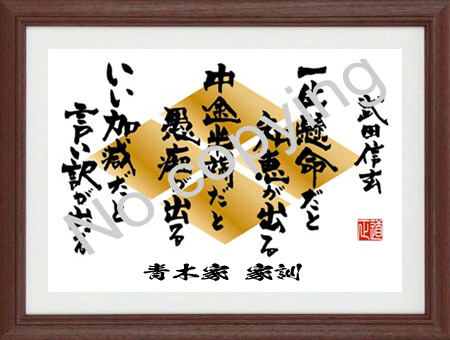 武田信玄
一所懸命だと
知恵が出る
中途半端だと
愚痴が出る
いい加減だと
言い訳が出る
青木家 家訓
No copying